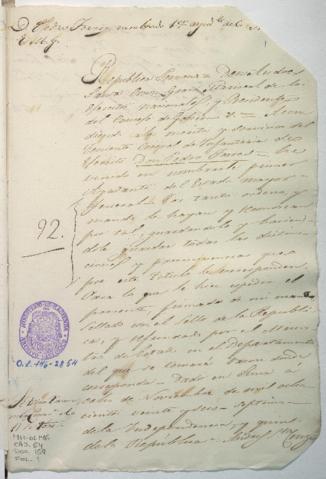 D. Pedro nombrado 1er ayud.te del
E. M. G.
República Peruana = Don Andres
Santa Cruz Gran Mariscal de los
Ejércitos nacionales y Presidente
del Consejo de Gobierno &. = Aten
diendo a los meritos y servicios del
Teniente Coronel de Infanteria de
Ejército Don Pedro he
venido en nombrarle primer
Ayudante del Estado mayor
General = Por tanto ordeno, y
mando le hayan y reconozcan
por tal, guardandole y hacien
dole guardar todas las distinc
ciones y preeminencias que
por este Titulo le corresponden.
Para lo que le hice espedir el
presente, firmado de mi mano
sellado con el sello de la Republi
ca, y refrendado por el Minis
tro de Estado en el Departamento
del que se tomará razon donde
corresponda = Dado en Lima á
siete de Noviembre de mil ocho
ciento veinte y seis = septimo
de la Independencia, y quinto
de la República = Andres Santa
92.
O.L. 146-2854
MINISTERIO DE HACIENDA
O.L. 146
CAJ. 54
DOC. 159
FOL. 1